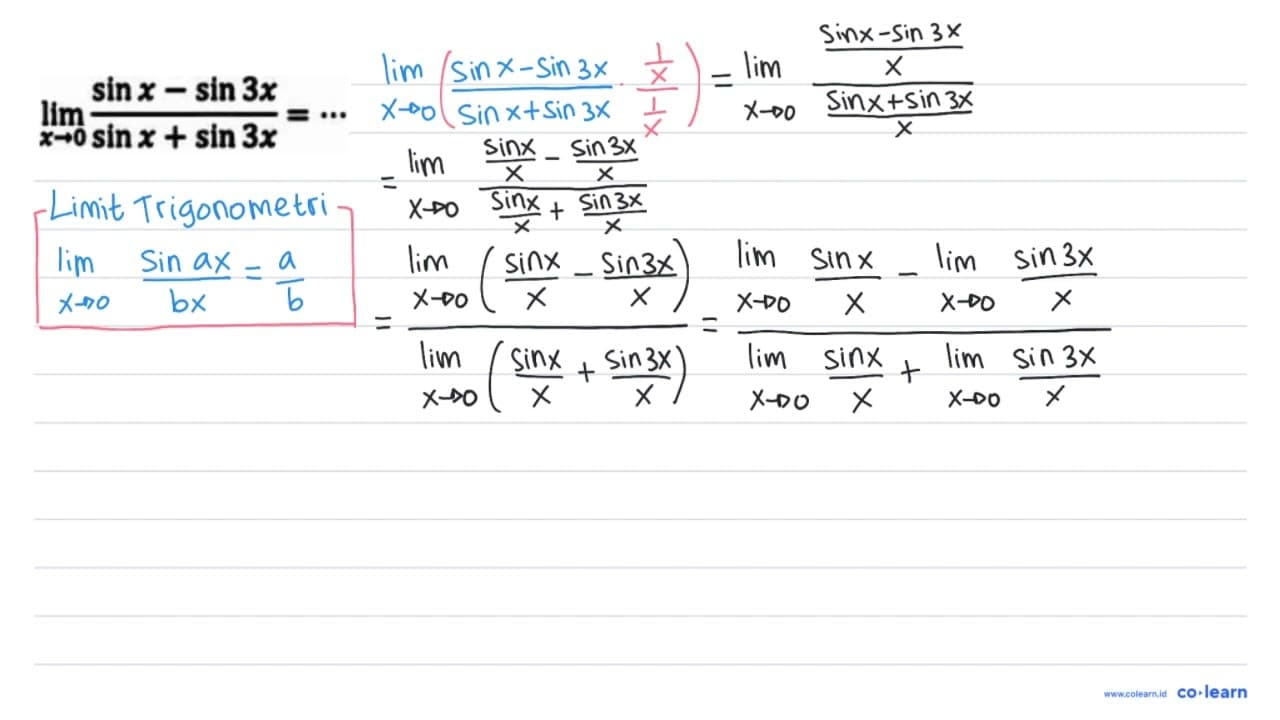 lim x→0 (sin x − sin 3x)/(sin x + sin 3x) = ...
Limit Trigonometri
lim x→0 (sin ax)/(bx) = a/b
lim x→0 ( (sin x − sin 3x)/(sin x + sin 3x) · (1/x)/(1/x) ) = lim x→0 ((sin x − sin 3x)/x)/((sin x + sin 3x)/x)
= lim x→0 (sin x/x − sin 3x/x)/(sin x/x + sin 3x/x)
= (lim x→0 (sin x/x − sin 3x/x))/(lim x→0 (sin x/x + sin 3x/x)) = (lim x→0 sin x/x − lim x→0 sin 3x/x)/(lim x→0 sin x/x + lim x→0 sin 3x/x)
www.colearn.id co·learn